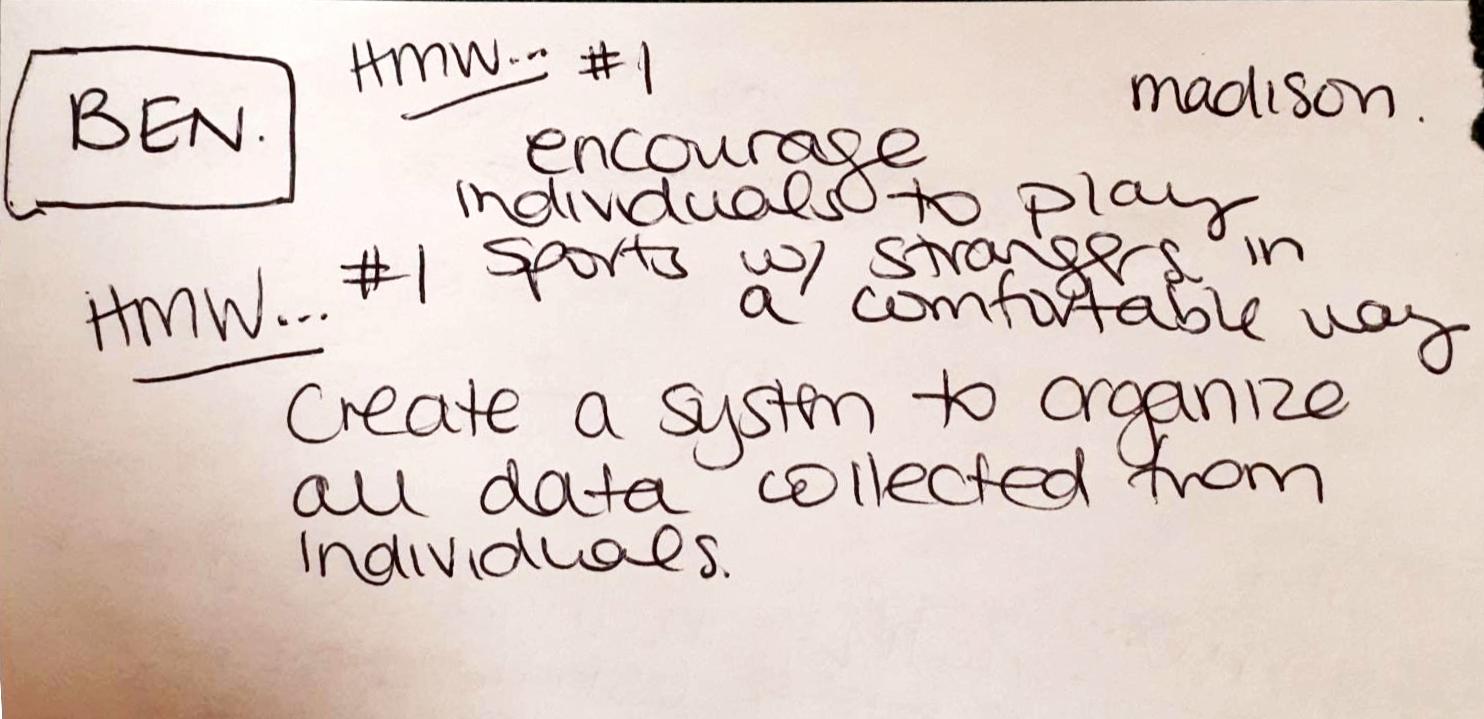 BEN.
HMW... #1
madison.
encourage
individuals to play
sports w/ strangers in
a comfortable way
HMW... #1
Create a system to organize
all data collected from
individuals.